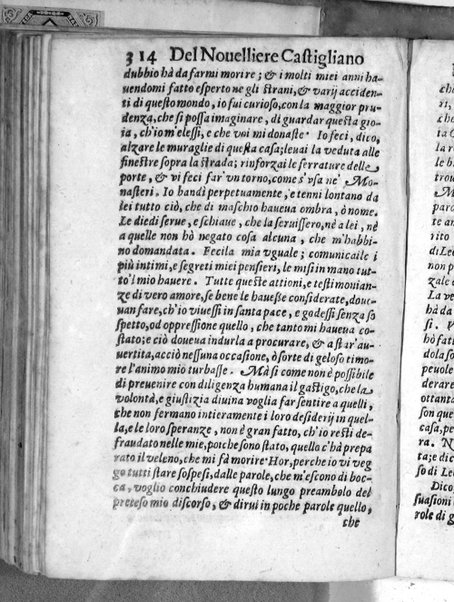 314 Del Nouelliere Castigliano
dubbio hà da farmi morire; & i molti miei anni ha-
uendomi fatto esperto ne gli strani, & varij acciden-
ti di questo mondo, io fui curioso, con la maggior pru-
denza, che si possa imaginare, di guardar questa gio-
ia, ch'io m'elessi, e che voi mi donaste. Io feci, dico,
alzare le muraglie di questa casa; leuai la veduta alle
finestre sopra la strada; rinforzai le serrature delle
porte, & vi feci far vn torno, come s'vsa ne' Mo-
nasteri. Io bandì perpetuamente, e tenni lontano da
lei tutto ciò, che di maschio haueua ombra, ò nome.
Le diedi serue, e schiaue, che la seruissero, nè a lei, nè
a quelle non hò negato cosa alcuna, che m'habbi-
no domandata. Fecila mia vguale; comunicaile i
più intimi, e segreti miei pensieri, le misi in mano tut-
to'l mio hauere. Tutte queste attioni, e testimonian-
ze di vero amore, se bene le haueste considerate, doue-
uan fare, ch'io viuessi in santa pace, e godessi senza so
spetto, od oppressione quello, che tanto mi haueua co-
stato; e ciò doueua indurla a procurare, & a star'au-
uertita, acciò nessuna occasione, ò sorte di geloso timo-
re l'animo mio turbasse. Mà sì come non è possibile
di preuenire con diligenza humana il gastigo, che la
volontà, e giustitia diuina voglia far sentire a quelli,
che non fermano intieramente i loro desiderij in quel-
la, e le loro speranze, non è gran fatto, ch'io resti de-
fraudato nelle mie, poiche sono stato, quello c'hà prepa
rato il veleno, che mi fà morire. Hor, perche io vi veg
go tutti stare sospesi, dalle parole, che m'escono di boc-
ca, voglio conchiudere questo lungo preambolo del
preteso mio discorso, & dirui in poche parole quello,
che